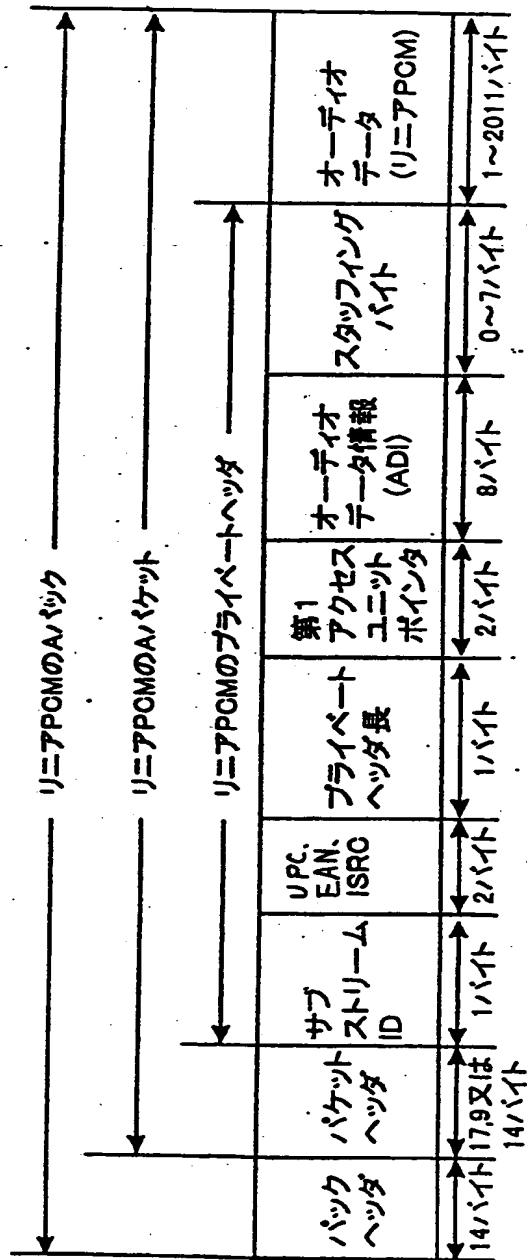 リニアPCMのAパック
リニアPCMのAパケット
リニアPCMのプライベートヘッダ
パック
ヘッダ
パケット
ヘッダ
サブ
ストリーム
ID
UPC.
EAN.
ISRC
プライベート
ヘッダ長
第1
アクセス
ユニット
ポインタ
オーディオ
データ情報
(ADI)
スタッフィング
バイト
オーディオ
データ
(リニアPCM)
14バイト
17,9又は
14バイト
1バイト
2バイト
1バイト
2バイト
8バイト
0~7バイト
1~2011バイト